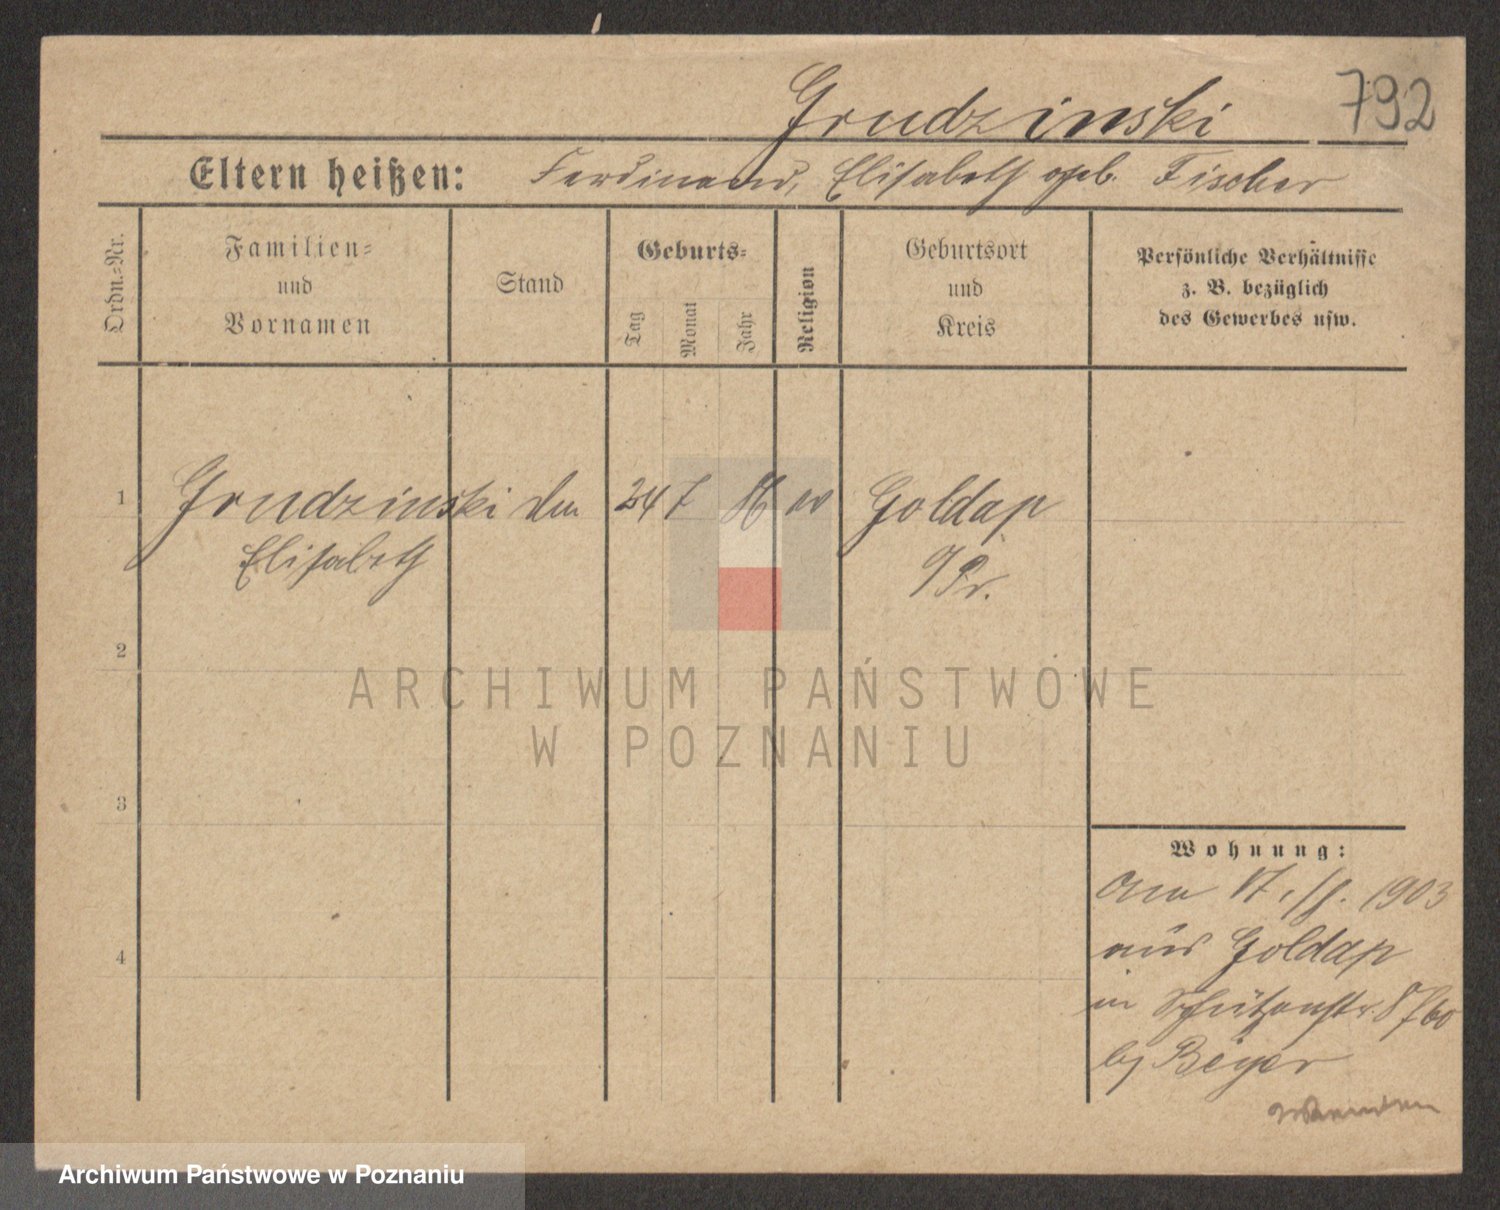 Grudzinski 792
Eltern heißen: Ferdinand, Elisabeth geb. Fischer
Ordn.=Nr.
Familien=
und
Vornamen
Stand
Geburts=
Tag
Monat
Jahr
Religion
Geburtsort
und
Kreis
Persönliche Verhältnisse
z. B. bezüglich
des Gewerbes usw.
1 Grudzinski 24 7 Goldap
Elisabeth
2
ARCHIWUM PAŃSTWOWE
W POZNANIU
3
4
Wohnung:
1903
aus Goldap
in Schützenstr.
Beyer
Archiwum Państwowe w Poznaniu